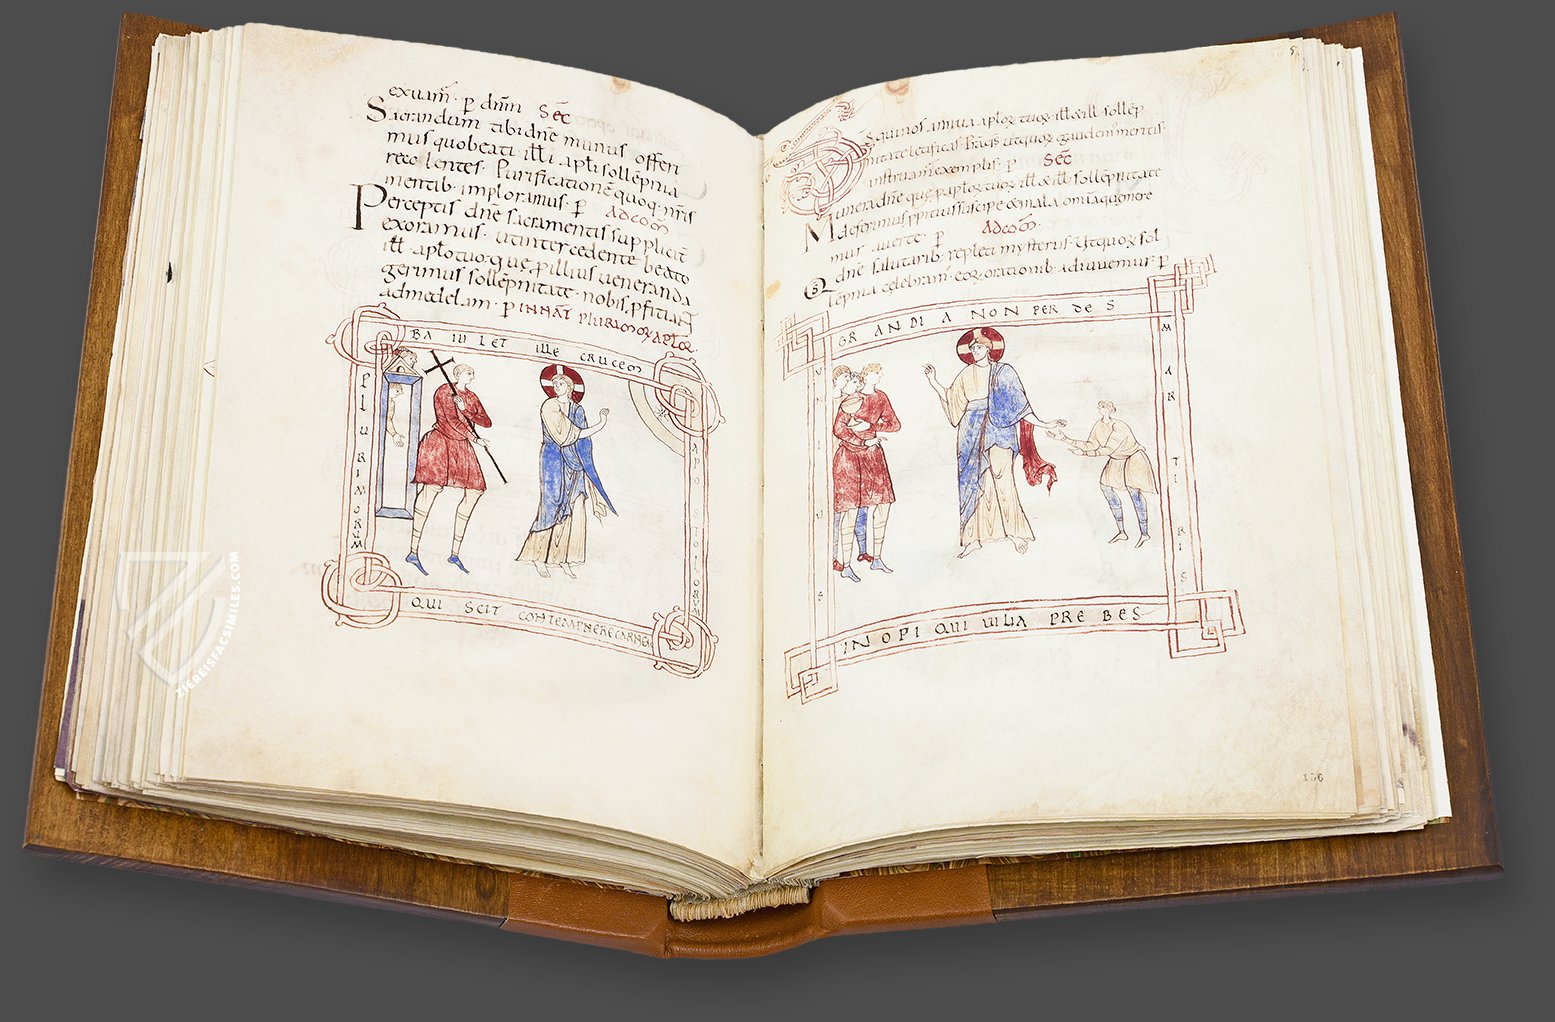 exuam̄· p̄ dn̄m Sec̄
Sacrandum tibi dn̄e munus offeri
mus quo beati illi apl̄i sollēpnia
recolentes· Purificationē quoq· nr̄is
mentib· imploramus· p̄ Ad com̄
Perceptis dn̄e sacramentis suppliciť
exoramus· ut intercedente beato
ill̄ apl̄o tuo· que p̄ illius ueneranda
gerimus sollēpnitate· nobis p̄ficiant
ad medelam· p̄ IN NAT PLURIMOR APLOR
BAIULET ILLE CRUCEM
PLURIMORUM
APOSTOLORUM
QUI SCIT CONTEMPNERE CARNEM
5
Ds qui nos annua aplor tuor ill̄ & ill̄ sollēp
nitate letificas· ut quor gaudem' meritis·
instruam̄ exemplis· p̄ Sec̄
Munera dn̄e que p aplor tuor ill̄ & ill̄ sollēpnitate
deferimus ppitius suscipe & mala om̄a que mere
mur auerte p̄ Ad com̄·
Qs dn̄e salutarib· repleti mysteriis· Ut quor sol
lēpnia celebram' eor orationib· adiuuemur p̄
GRANDIA NON PERDES
UNIUS
MARTIRIS
INOPI QUI UILIA PREBES
156
ZIEREISFACSIMILES.COM